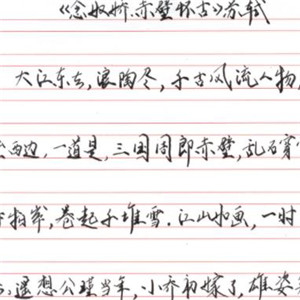 《念奴娇.赤壁怀古》苏轼
大江东去,浪陶尽,千古风流人物,
西边,一道是,三国周郎赤壁,乱石穿
拍岸,卷起千堆雪.江山如画,一时
遥想公瑾当年,小乔初嫁了,雄姿